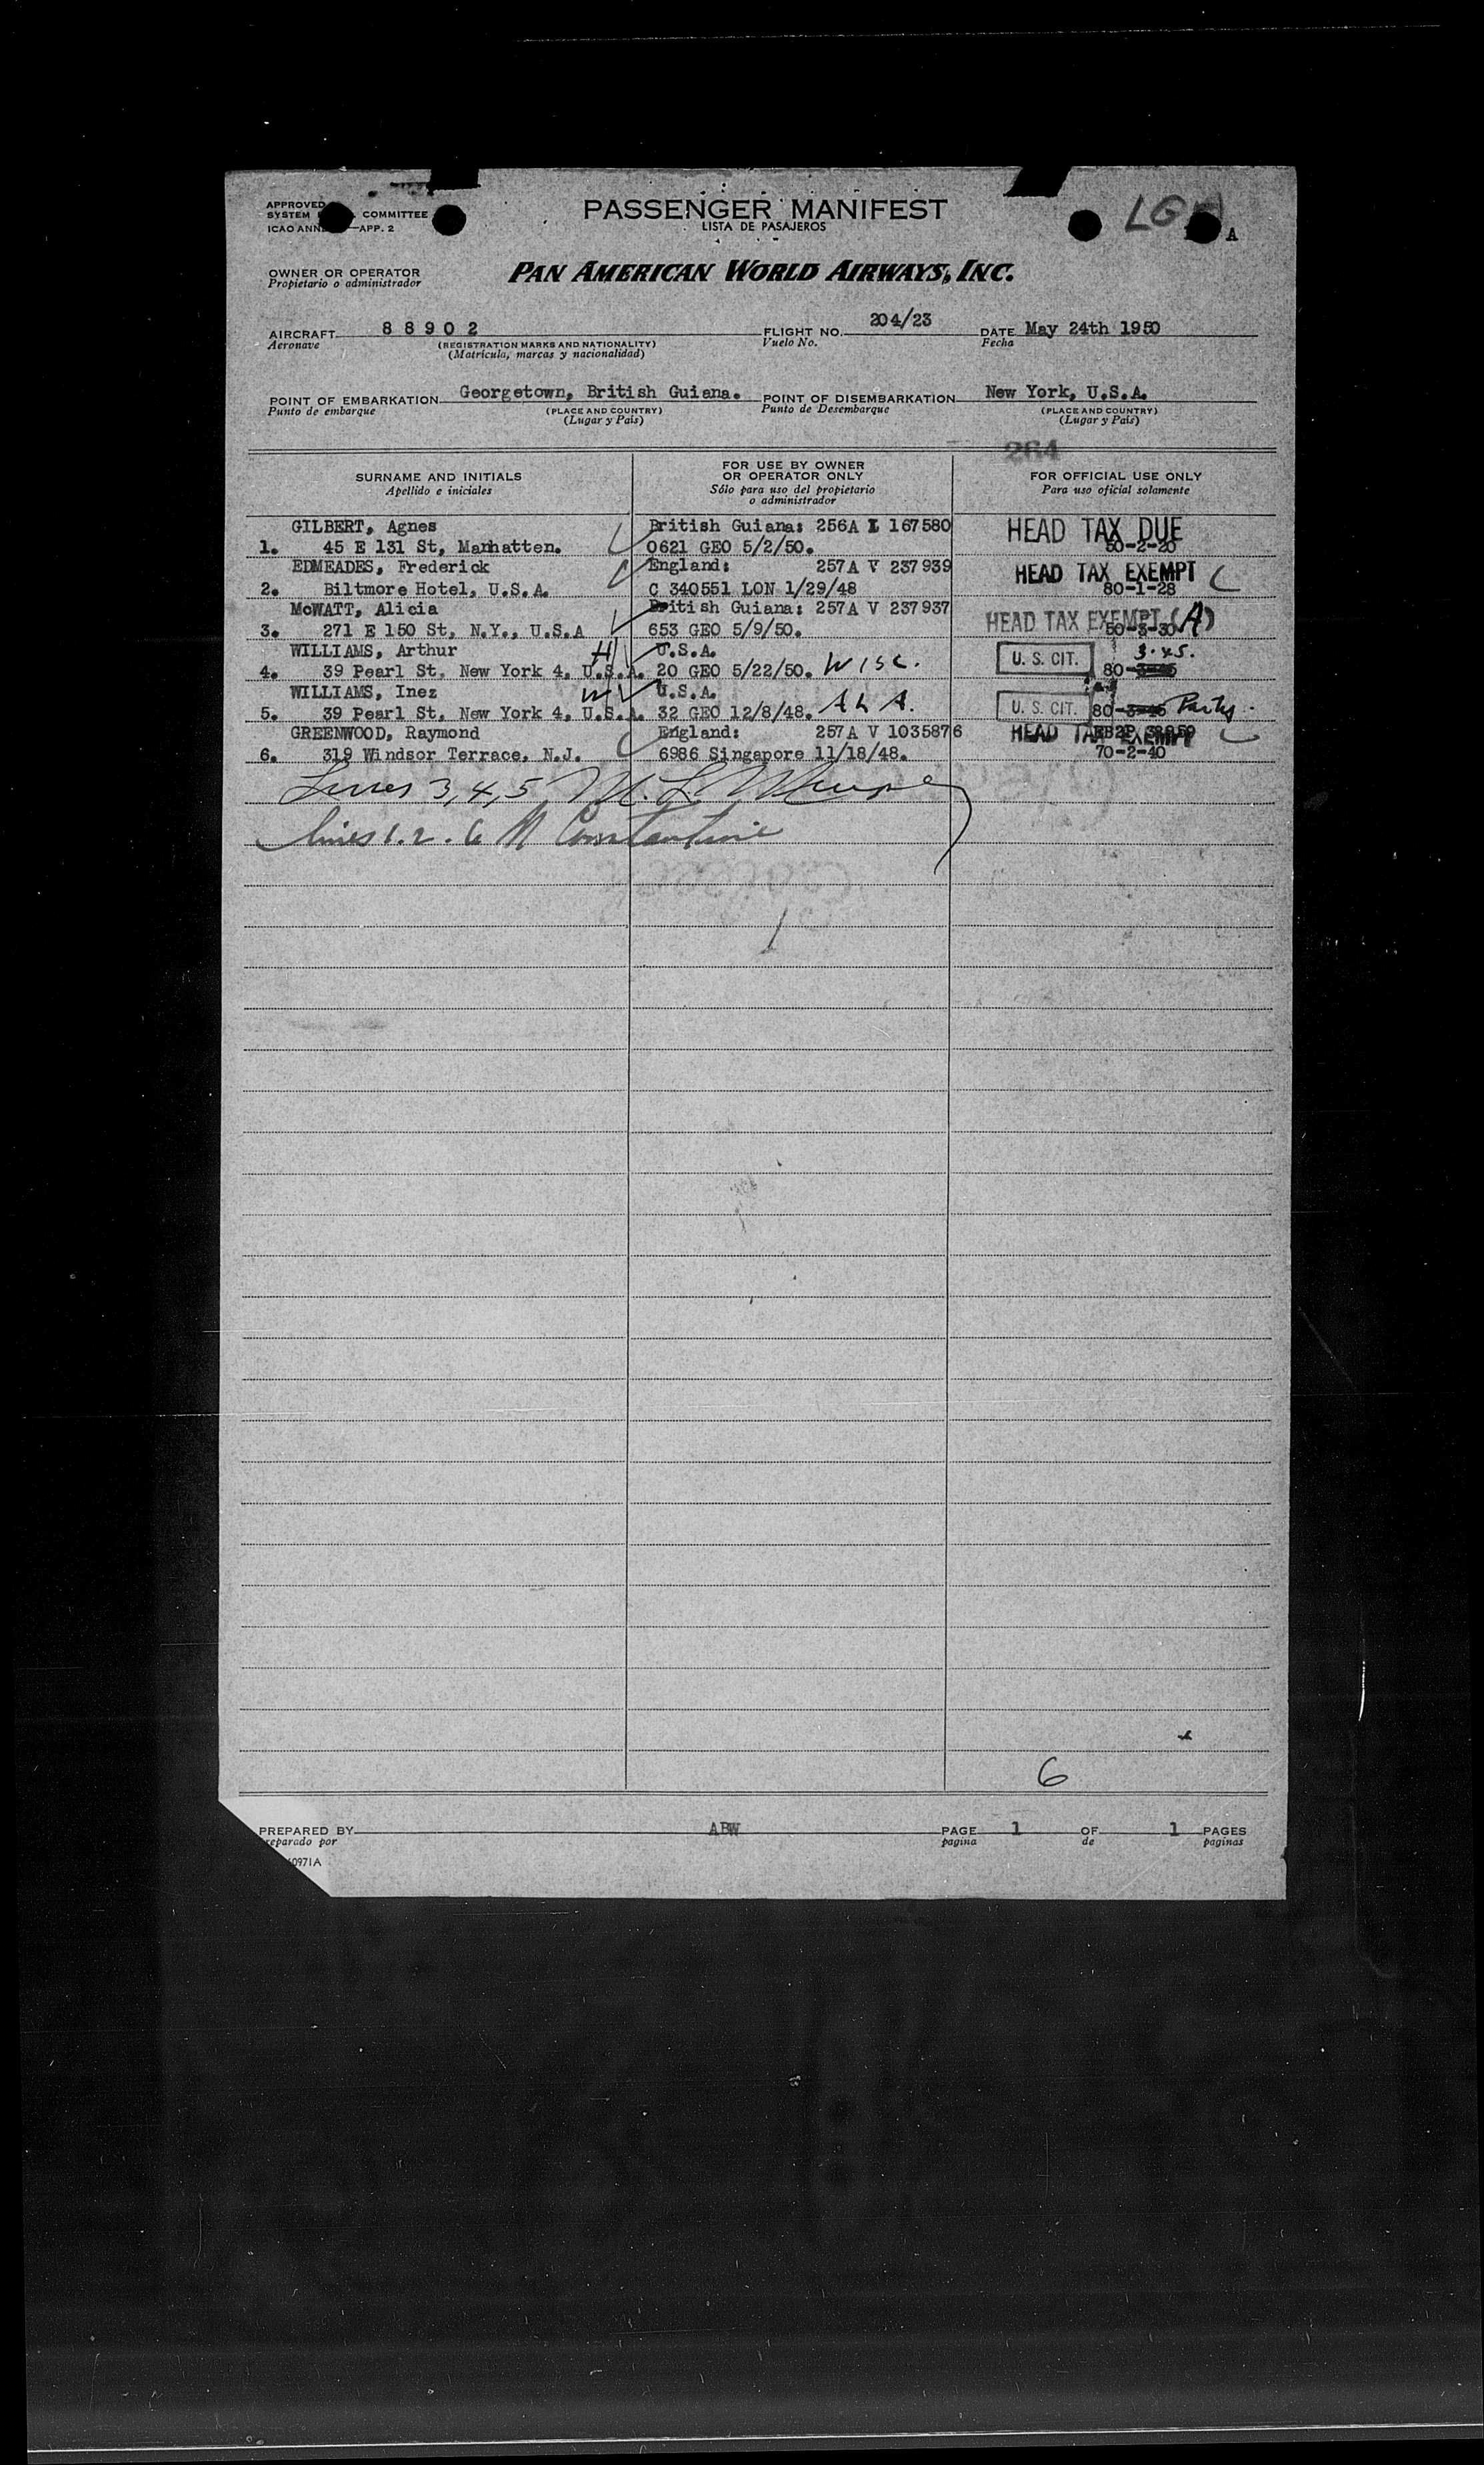 APPROVED
SYSTEM COMMITTEE
ICAO ANN —APP. 2
PASSENGER MANIFEST
LISTA DE PASAJEROS
LG
A
OWNER OR OPERATOR
Propietario o administrador
PAN AMERICAN WORLD AIRWAYS, INC.
AIRCRAFT 8 8 9 0 2 FLIGHT NO. 204/23 DATE May 24th 1950
Aeronave (REGISTRATION MARKS AND NATIONALITY) Vuelo No. Fecha
(Matrícula, marcas y nacionalidad)
POINT OF EMBARKATION Georgetown, British Guiana. POINT OF DISEMBARKATION New York, U.S.A.
Punto de embarque (PLACE AND COUNTRY) Punto de Desembarque (PLACE AND COUNTRY)
(Lugar y País) (Lugar y País)
264
SURNAME AND INITIALS
Apellido e iniciales
FOR USE BY OWNER
OR OPERATOR ONLY
Sólo para uso del propietario
o administrador
FOR OFFICIAL USE ONLY
Para uso oficial solamente
GILBERT, Agnes British Guiana: 256A I 167580 HEAD TAX DUE
1. 45 E 131 St, Manhatten. 0621 GEO 5/2/50. 50-2-20
EDMEADES, Frederick England: 257A V 237939 HEAD TAX EXEMPT
2. Biltmore Hotel, U.S.A. C 340551 LON 1/29/48 80-1-28
McWATT, Alicia British Guiana: 257A V 237937 HEAD TAX EXEMPT (A)
3. 271 E 150 St, N.Y., U.S.A 653 GEO 5/9/50. 50-3-30
WILLIAMS, Arthur H U.S.A. U. S. CIT. 3.45.
4. 39 Pearl St, New York 4, U.S.A. 20 GEO 5/22/50. WISC. 80-
WILLIAMS, Inez W U.S.A.
5. 39 Pearl St, New York 4, U.S.A. 32 GEO 12/8/48. ALA. U. S. CIT. 80-
GREENWOOD, Raymond England: 257A V 1035876 HEAD TAX EXEMPT
6. 319 Windsor Terrace, N.J. 6986 Singapore 11/18/48. 70-2-40
Lines 3,4,5 M. L.
lines 1.2.6 M Constantine
6
PREPARED BY ABW PAGE 1 OF 1 PAGES
reparado por pagina de paginas
0971A